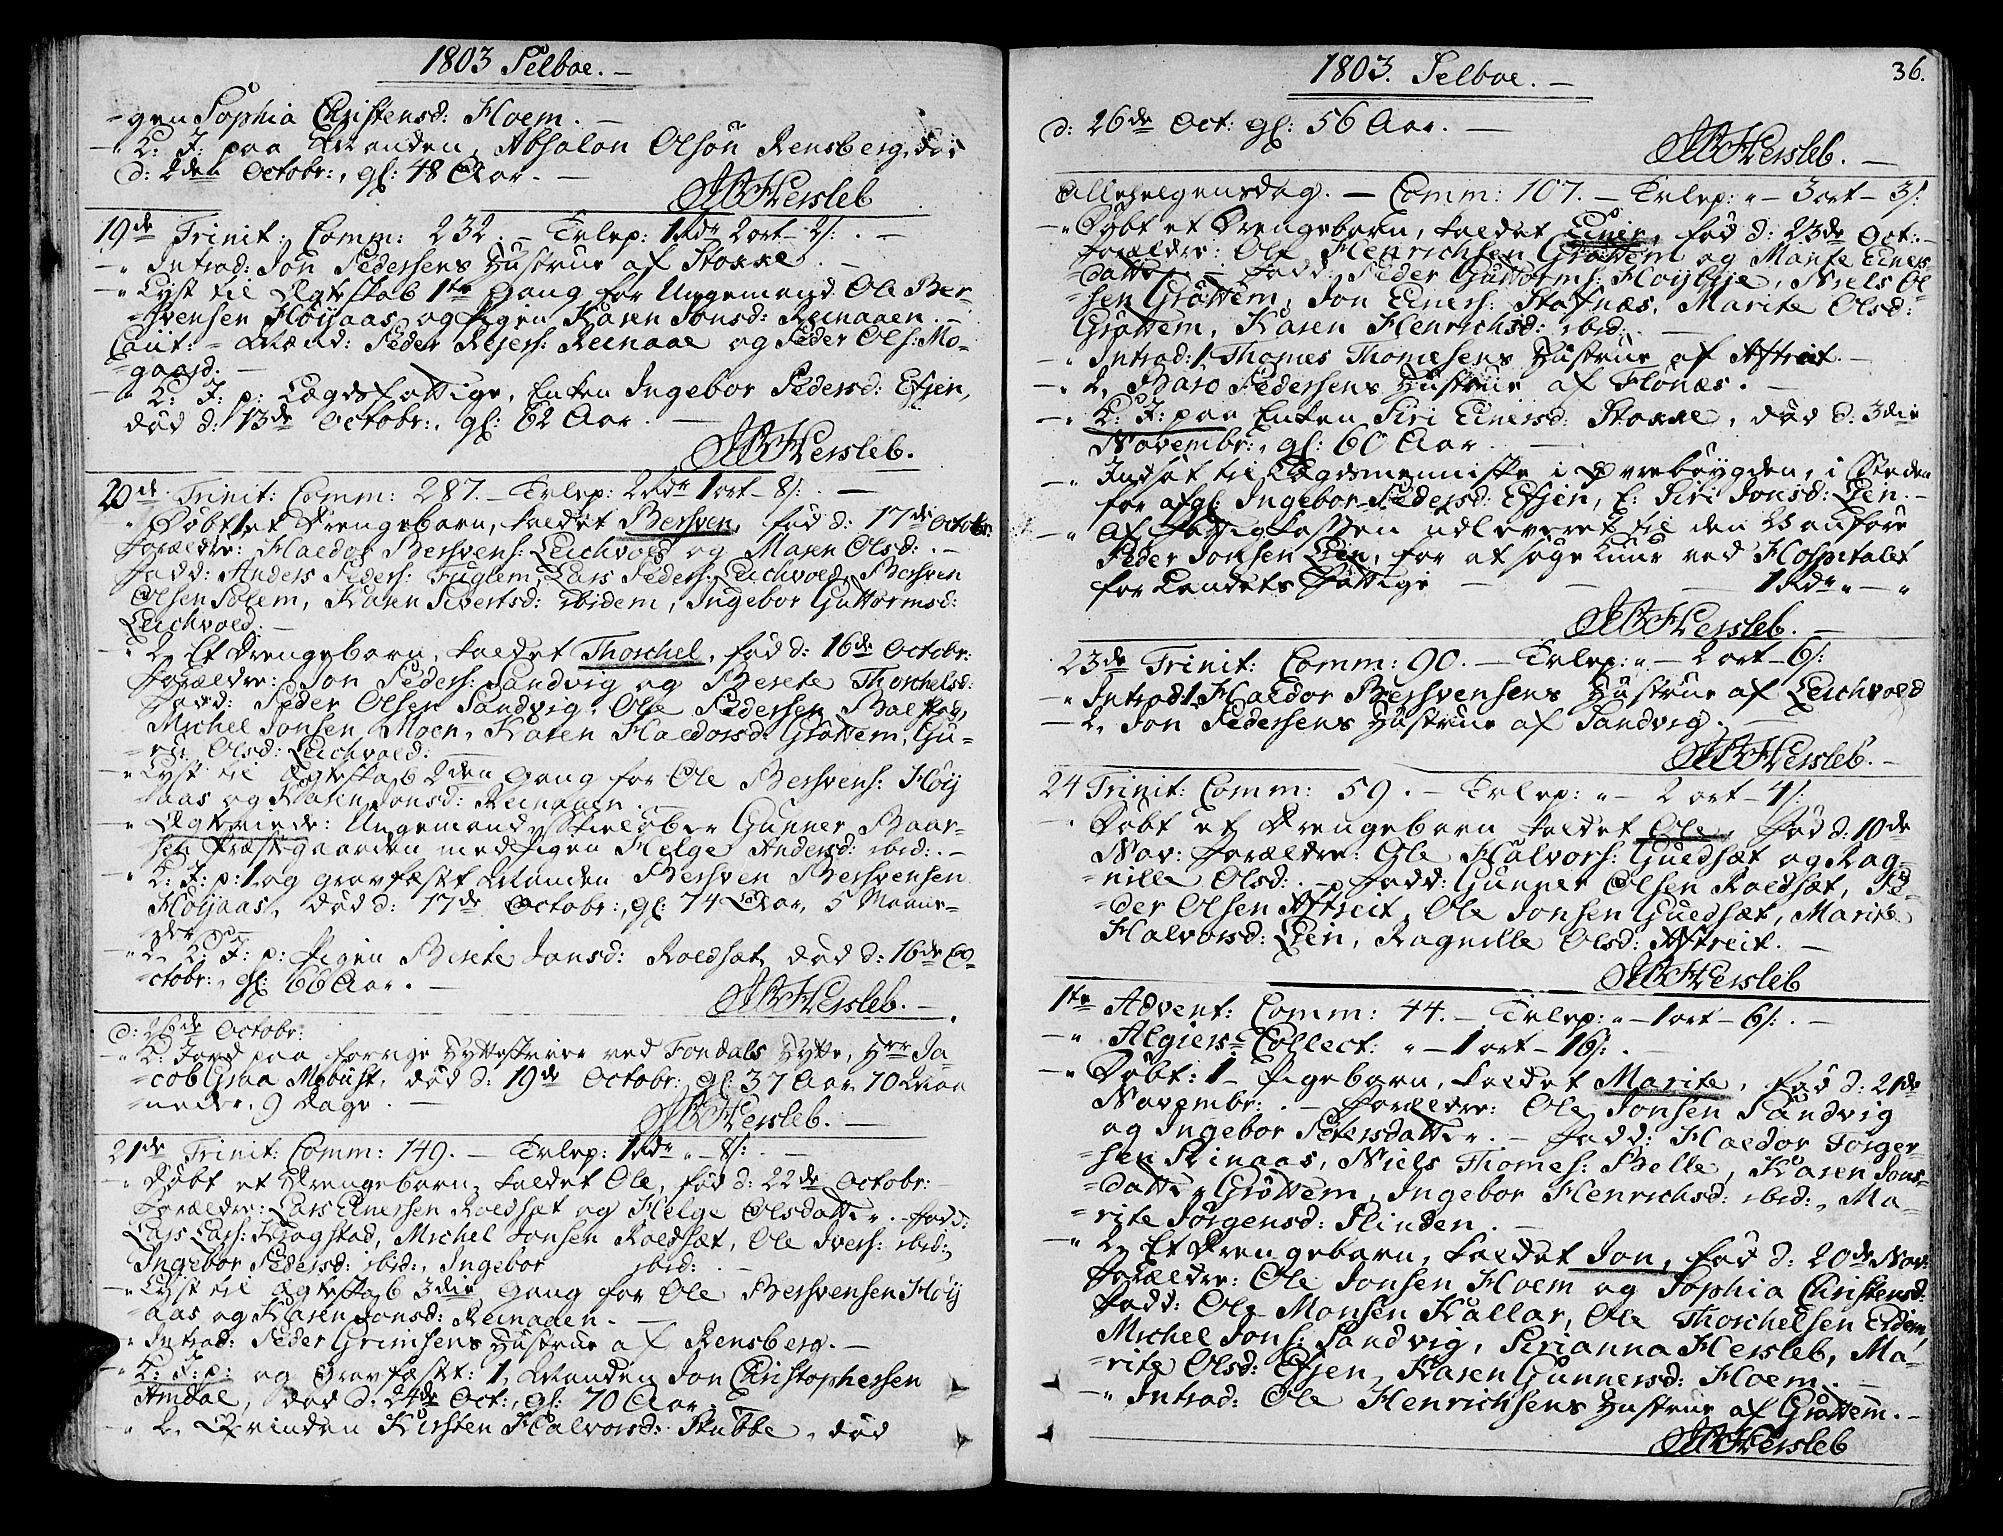 1803 Selboe. —
-gen Sophia Christensd: Hoem. —
-" K: J: paa Manden, Absalon Olsøn Rensberg, død
d: 2den Octobr:, gl: 48 Aar. —
JB Hersleb
19de Trinit: Comm: 232. — Tvlep: 1 Rdr 2 ort - 2 s: . —
-" Introd: Jon Pedersens Hustrue af Stokke. —
-" Lyst til Ægteskab 1te Gang for Ungemand Ole Ber-
-svensen Høiÿaas og Pigen Karen Jonsd: Reinaaen. —
Caut: - Mænd: Peder Rejers: Reinaae og Peder Ols: Mo-
-gaard. —
-" K: J: p: Lægdsfattige, Enken Ingebor Pedersd: Efjen,
død d: 13de Octobr:, gl: 62 Aar. —
JB Hersleb.
20de Trinit: Comm: 287. — Tvlep: 2 Rdr 1 ort - 8 s: . —
" Døbt 1 et Drengebarn, kaldet Bersven, fød d: 17de Octobr:
Forældre: Haldor Bersvens: Leichvold og Maren Olsd: . —
Fadd: Anders Peders: Fuglem, Lars Peders: Leichvold, Bersven
Olsen Solem, Karen Sivertsd: ibidem, Ingebor Guttormsd:
Leichvold. —
-" 2, Et Drengebarn, kaldet Thorchel, fød d: 16de Octobr:
Forældre: Jon Peders: Sandvig og Berete Thorchelsd:
Fadd: Peder Olsen Sandvig, Ole Pedersen Balstad,
Michel Jonsen Moen, Karen Haldorsd: Grøttem, Gu-
-ru Olsd: Leichvold. —
-" Lyst til Ægteskab 2den Gang for Ole Bersvens: Høiÿ
-aas og Karen Jonsd: Reinaaen. —
-" Ægteviede: Ungemand Skieløber Gunner Baar-
-sen Præstgaarden med Pigen Helge Andersd: ibid: . —
-" K: J: p: 1 og gravfæstet Manden Bersven Bersvensen
Høiÿaas, død d: 17de Octobr:, gl: 74 Aar, 5 Maane-
-der
-" 2, K: J: p: Pigen Berete Jonsd: Roldsæt, død d: 16de O-
-ctobr:, gl: 66 Aar. —
JB Hersleb. —
d: 26de Octobr:
-" K: Jord paa forrige Hyttskriver ved Tondals Hytte, Hrr Ja-
-cob Graa Møbust, død d: 19de Octobr: gl: 37 Aar, 10 Maa-
-neder, 9 Dage. —
JB Hersleb. —
21de Trinit: Comm: 149. — Tvlep: 1 Rdr " - 8 s: . —
-" Døbt et Drengebarn, kaldet Ole, fød d: 22de Octobr: —
Forældre: Lars Einersen Roldsæt og Helge Olsdatter. - Fadd:
Lars Lars: Krogstad, Michel Jonsen Roldsæt, Ole Ivers: ibid:,
Ingebor Pedersd: ibid:, Ingebor ibid: . —
-" Lyst til Ægteskab 3die Gang for Ole Bersvensen Høiÿ
-aas og Karen Jonsd: Reinaaen. —
-" Introd: Peder Grimsens Hustrue af Rensberg. —
-" K: J: p: og Gravfæstt: 1, Manden Jon Christophersen
Amdal, død d: 24de Oct:, gl: 70 Aar. —
-" 2, Qvinden Kirsten Halvorsd: Stubbe, død
1803. Selboe. —
36.
d: 26de Oct: gl: 56 Aar. —
JB Hersleb. —
Allehelgensdag. — Comm: 107. — Tvlep: " - 3 ort - 3 s:
-" Døbt et Drengebarn, kaldet Einer, fød d: 23de Oct: -
Forældre: Ole Henrichsen Grøttem og Marite Einers
-datter. — Fadd: Peder Guttorms: Høiÿbÿe, Niels Ol-
-sen Grøttem, Jon Einers: Stafnæs, Marite Olsd:
Grøttem, Karen Henrichsd: ibid: . —
-" Introd: 1, Thomes Thomesens Hustrue af Aftreit —
-" 2, Baro Pedersens Hustrue af Flønæs. —
-" K: J: paa Enken Siri Einersd: Stokke, død d: 3die
Novembr:, gl: 60 Aar. —
-" Indsat til Lægdsmenniske i Øvrebøygden, i Steden
for afgl: Ingebor Pedersd: Efjen, E: Siri Jonsd: Lien. —
-" Af Fattigkassen udleveret til den Vanføre
Peder Jonsen Lien, for at søge Cuur ved Hospitalet
for Landets Fattige — 1 Rdr " - "
JB Hersleb. —
23de Trinit: Comm: 90. — Tvlep: " - 2 ort - 6 s:
-" Introd: 1, Haldor Bersvensens Hustrue af Leichvold
— 2, Jon Pedersens Hustrue af Sandvig. —
JB Hersleb. —
24 Trinit: Comm: 59. — Tvlep: " - 2 ort - 4 s:
-" Døbt et Drengebarn kaldet Ole, fød d: 10de
Nov: Forældre: Ole Halvors: Guldsæt og Rag-
-nille Olsd: . — Fadd: Gunner Olsen Roldsæt, Pe-
-der Olsen Aftreit, Ole Jonsen Guldsæt, Marite
Halvorsd: Lien, Ragnille Olsd: Aftreit. —
JB Hersleb
1te Advent: Comm: 44. — Tvlep: " - 1 ort - 6 s: . —
-" Algiers-Collect: " - 1 ort - 16 s: .
-" Døbt: 1 - Pigebarn, kaldet Marite, fød d: 21de
Novembr: . — Forældre: Ole Jonsen Sandvig
og Ingebor Petersdatter. — Fadd: Haldor Jorger-
-sen Rinaas, Niels Thomes: Belle, Karen Jons-
-datter Grøttem, Ingebor Henrichsd: ibid:, Ma-
-rite Jørgensd: Slinden. —
-" 2, Et Drengebarn, kaldet Jon, fød d: 20de Nov:
Forældre: Ole Jonsen Hoem og Sophia Christensd:
Fadd: Ole Monsen Kallar, Ole Thorchelsen Eidem,
Michel Jons: Sandvig, Sirianna Hersleb, Ma-
-rite Olsd: Efjen, Karen Gunnersd: Hoem. —
-" Introd: Ole Henrichsens Hustrue af Grøttem. —
JB Hersleb